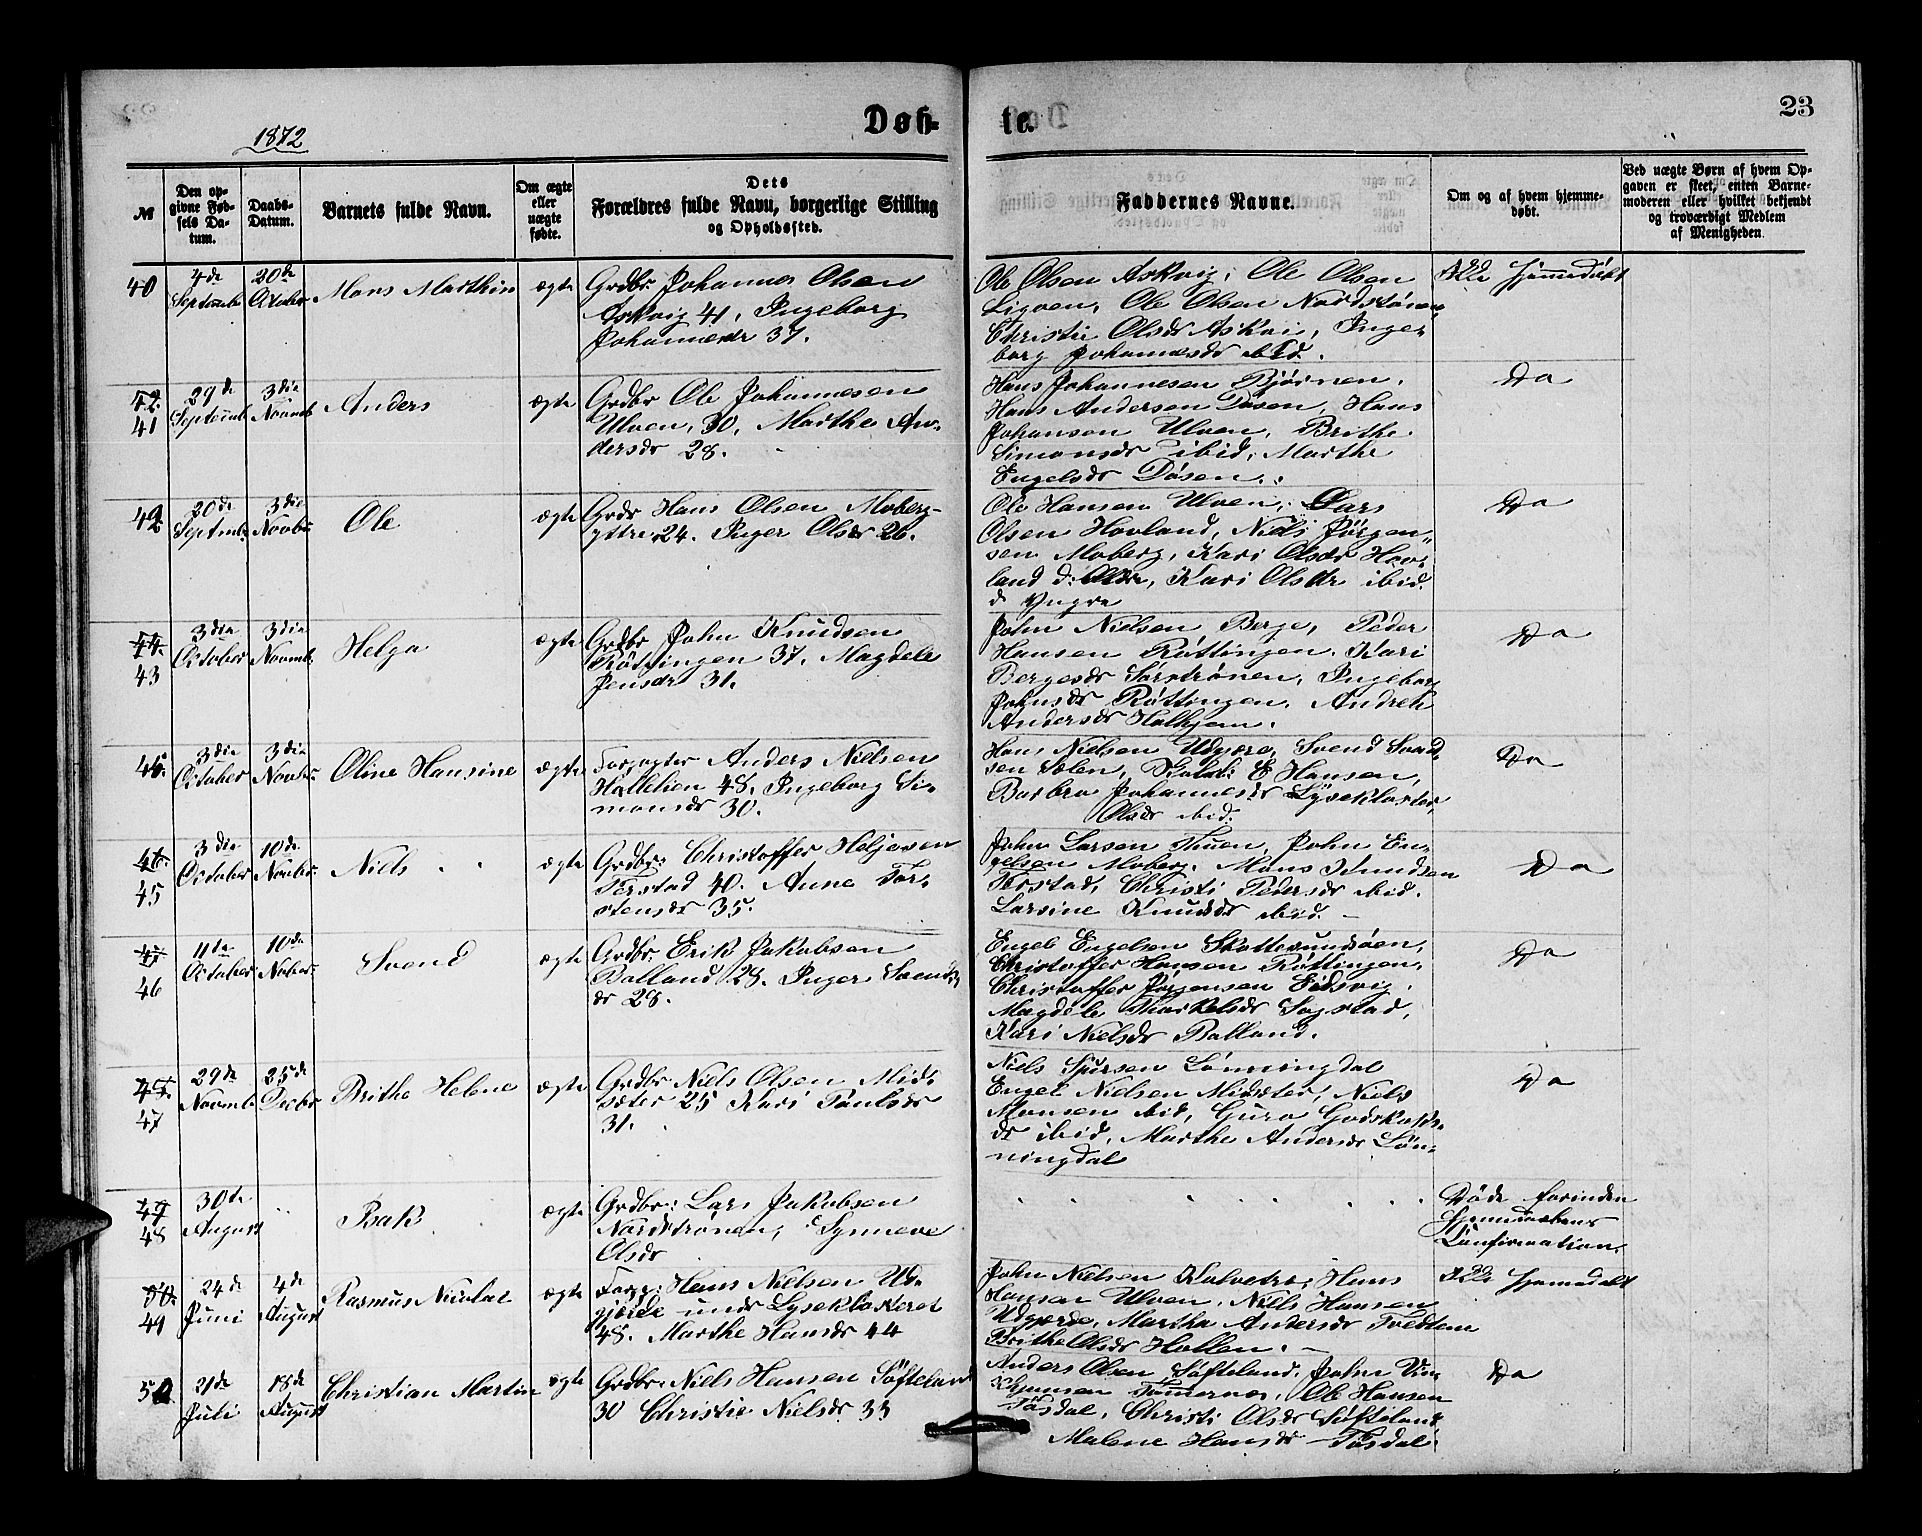 1872
Døb-
te.
23
№
Den op-
givne Fød-
sels Da-
tum.
Daabs-
Datum.
Barnets fulde Navn.
Om ægte
eller
uægte
fødte.
Dets
Forældres fulde Navn, borgerlige Stilling
og Opholdssted.
Faddernes Navne.
Om og af hvem hjemme-
døbt.
Ved uægte Børn af hvem Op-
gaven er skeet, enten Barne-
moderen eller hvilket bekjendt
og troværdigt Medlem
af Menigheden.
40
4de
Septembr
20de
October
Mons Marthin
ægte
Grdbr Johannes Olsen
Askvig 41, Ingeborg
Johannesdr 37.
Ole Olsen Askvig, Ole Olsen
Ligven, Ole Olsen Nordstrønen,
Christie Olsdr Askvi, Inge-
borg Johannesdr ibid.
Ikke hjemmedøbt
42.
41
29de
Septembr.
3die
Novmb.
Anders
ægte
Grdbr Ole Johannesen
Ulven, 30, Marthe An-
dersdr 28.
Hans Johannesen Bjørnen,
Hans Andersen Døsen, Hans
Johansen Ulven, Brithe
Simonsdr ibid, Marthe
Engelsdr Døsen.
Do
42
20de
Septmbr.
3die
Novbr.
Ole
ægte
Grdbr Hans Olsen Moberg-
yttre 24. Inger Olsdr 26.
Ole Hansen Ulven, Lars
Olsen Hovland, Niels Jørgen-
sen Moberg, Kari Olsdr Hov-
land d: Eldre, Kari Olsdr ibid
d Yngre
Do
44.
43
3die
October
3die
Novmb.
Helga
ægte
Grdbr John Knudsen
Røttingen 37. Magdele
Jensdr 31.
John Nielsen Berge, Peder
Hansen Røttingen, Kari
Bergesdr Sørstrønen, Ingeborg
Johnsdr Røttingen, Andrek
Andersdr Halhjem.
Do
3die
October
3die
Novbr.
Oline Hansine
ægte
Forpagter Anders Nielsen
Hallelien 48. Ingeborg Si-
monsdr 30.
Hans Nielsen Udgjære, Svend Svend-
sen Solen, E. Hansen,
Barbro Johannesdr Lysekloster,
Olsdr ibid.
Do
46.
45
3die
October
10de
Novbr.
Niels
ægte
Grdbr: Christoffer Heljesen
Ferstad 40. Anne Tor-
stensdr 35.
John Larsen Thuen, John En-
gelsen Moberg. Mons Knudsen
Ferstad, Christi Pedersdr ibid.
Larsine Knudsdr ibid. –
Do
47
46
11te
October
10de
Nobr.
Svend
ægte
Grdbr. Erik Jakobsen
Balland 28. Inger Svends-
dr 28.
Engel Engelsen Skottesundsøen,
Christoffer Hansen Røttingen,
Christoffer Jørgensen Eidsvig.
Magdele Markelsdr Søgstad,
Kari Nielsdr Balland.
Do
47
29de
Novmb.
25de
Decbr
Brithe Helene
ægte
Grdbr Niels Olsen Mid-
sæter 25 Kari Poulsdr
31.
Niels Sjursen Lønningdal
Engel Nielsen Midsæter, Niels
Monsen ibid, Guro Godskalks-
dr ibid, Marthe Andersdr Løn-
ningdal
Do
49
48
30te
August
Isak
ægte
Grdbr: Lars Jakobsen
Nordstrønen, Synneve
Olsdr
Døde forinden
Hjemmedaabens
Confirmation.
50.
49
24de
Juni
4de
August
Rasmus Nicolai
ægte
Forp: Hans Nielsen Ud-
gjerde under Lysekloster
48. Marthe Hansdr 44
John Nielsen Kalvetræ, Hans
Hansen Ulven, Niels Hansen
Udgjerde, Martha Andersdr Tveeten
Brithe Olsdr Hallen. –
Ikke hjemmedøbt
50
21de
Juli
18de
August
Christian Martin
ægte
Grdbr. Niels Hansen Søfteland
30 Christie Nielsdr 33
Anders Olsen Søfteland, John
Ole Hansen
Tøsdal, Christi Olsdr Søfteland
Malene Hansdr Tøsdal.
Do